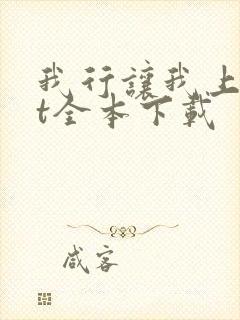 我行讓我上
t全本下載
咸客